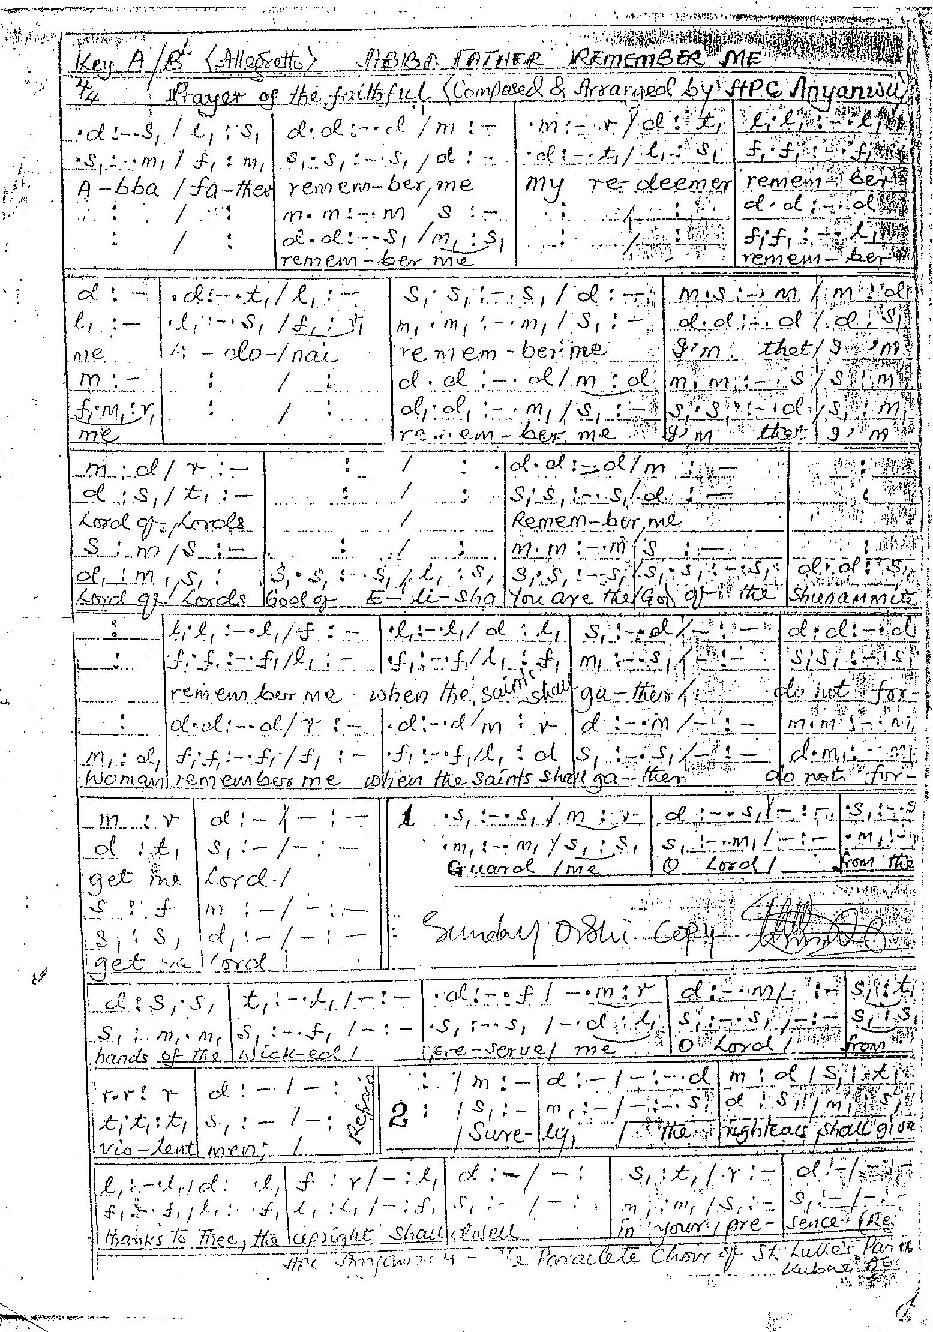 Key A/Bb (Allegretto) ABBA FATHER REMEMBER ME
4/4 Prayer of the faithful (Composed & Arranged by HPC Anyanwu)
.d:-.s,/l,:s, d.d:-.d/m:- .m:-.r/d:t, l,.l,:-.l,
.s,:-.m,/f,:m, s,.s,:-.s,/d:- .d:-.t,/l,:s, f,.f,:-.f,
A-bba/fa-ther remem-ber, me my re-deemer remem-ber
: / : m.m:-.m s:- : / : d.d:-.d
: / : d.d:-.s,/m,:s, : / : f,.f,:-.l,
remem-ber me remem-ber
d:- .d:-.t,/l,:- s,.s,:-.s,/d:- m.s:-.m/m:d
l,:- .l,:-.s,/f,: m,.m,:-.m,/s,:- d.d:-.d/d:s,
me A-do-/nai remem-ber me I'm thet/I'm
m:- : / : d.d:-.d/m:d m.m:-.s/s:m
f,.m,:r, : / : d,.d,:-.m,/s,:- s,.s,:-.d/s,:m
me remem-ber me I'm thet/I'm
m:d/r:- : / : .d.d:-.d/m:- :
d:s,/t,:- : / : s,.s,:-.s,/d:- :
Lord of/Lords / Remem-ber, me
s:m/s:- : / : m.m:-.m/s:- :
d,:m,/s,: s,.s,:-.s,/l,:s, s,.s,:-.s,/s,.s,:-.s, d.d:s,
Lord of/Lords God of E-li-sha You are the/God of the Shunammite
: l,.l,:-.l,/f:- .l,:-.l,/d:l, s,:-.d/-:- d.d:-.d
: f,.f,:-.f,/l,:- .f,:-.f,/l,:f, m,:-.s,/-:- s,.s,:-.s,
remember me when the saints shall ga-ther/ do not for-
: d.d:-.d/r:- .d:-.d/m:r d:-.m/-:- m.m:-.m
m,:d, f,.f,:-.f,/f,:- .f,:-.f,/l,:d s,:-.s,/-:- d.m,:-.m,
Woman remember me when the saints shall ga-ther do not for-
m:r d:-/-:- 1 .s,:-.s,/m:r d:-.s,/-:- .s,:-.s
d:t, s,:-/-:- .m,:-.m,/s,:s, s,:-.m,/-:- .m,:-
get me Lord./ Guard/me O Lord/ from the
s:f m:-/-:-
s,:s, d,:-/-:- Sunday Orshi Copy
get me Lord
d:s,.s, t,:-.l,/-:- .d:-.f/-.m:r d:-.m/-:- s,:t,
s,:m,.m, s,:-.f,/-:- .s,:-.s,/-.d:t, s,:-.s,/-:- s,:s,
hands of the wick-ed/ Pre-serve/me O Lord/ from
r.r:r d:-/-:- Refrain : /m:- d:-/-:-.d m:d/s,:t,
t,.t,:t, s,:-/-:- 2 : /s,:- m,:-/-:-.s, d:s,/m,:s,
vio-lent men;/ /Sure-ly, / the righteous shall give
l,:-.l,/d:l, f:r/-:l, d:-/-: s,:t,/r:- d:-/-:-
f,:-.f,/l,:f, l,:l,/-:f, s,:-/-: m,:m,/s,:- s,:-/-:-
thanks to Thee, the upright Shall dwell in your/pre-sence/
The Paraclete Choir of St. Luke's Parish
Kubwa